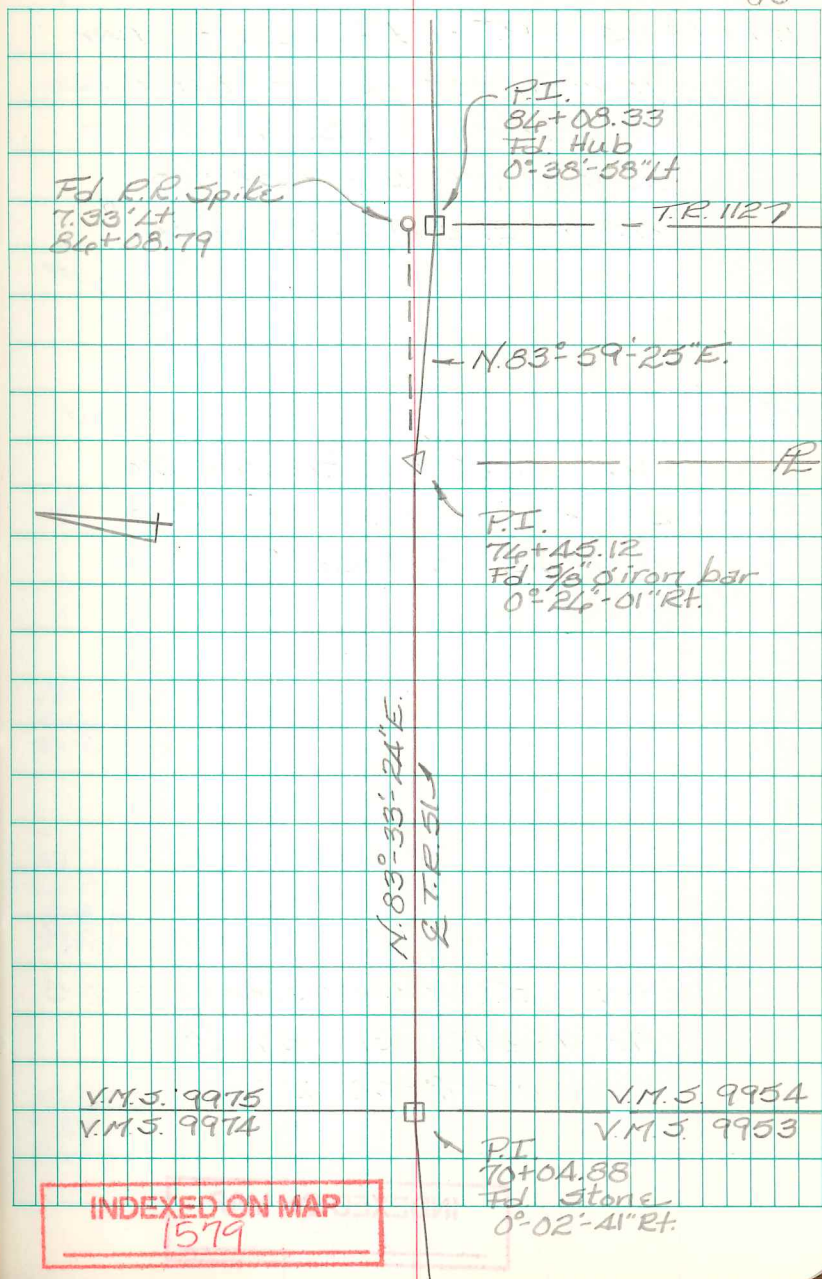 P.I.
86+08.33
Fd. Hub
0°-38'-58" Lt.
Fd. R.R. Spike
7.33' Lt
86+08.79
T.R. 1127
N. 83°-59'-25" E.
PL
P.I.
76+45.12
Fd. ø iron bar
0°-26'-01" Rt.
N. 83°-33'-24" E.
℄ T.R. 51
V.M.S. 9975
V.M.S. 9974
V.M.S. 9954
V.M.S. 9953
P.I.
70+04.88
Fd. Stone
0°-02'-41" Rt.
INDEXED ON MAP
1579